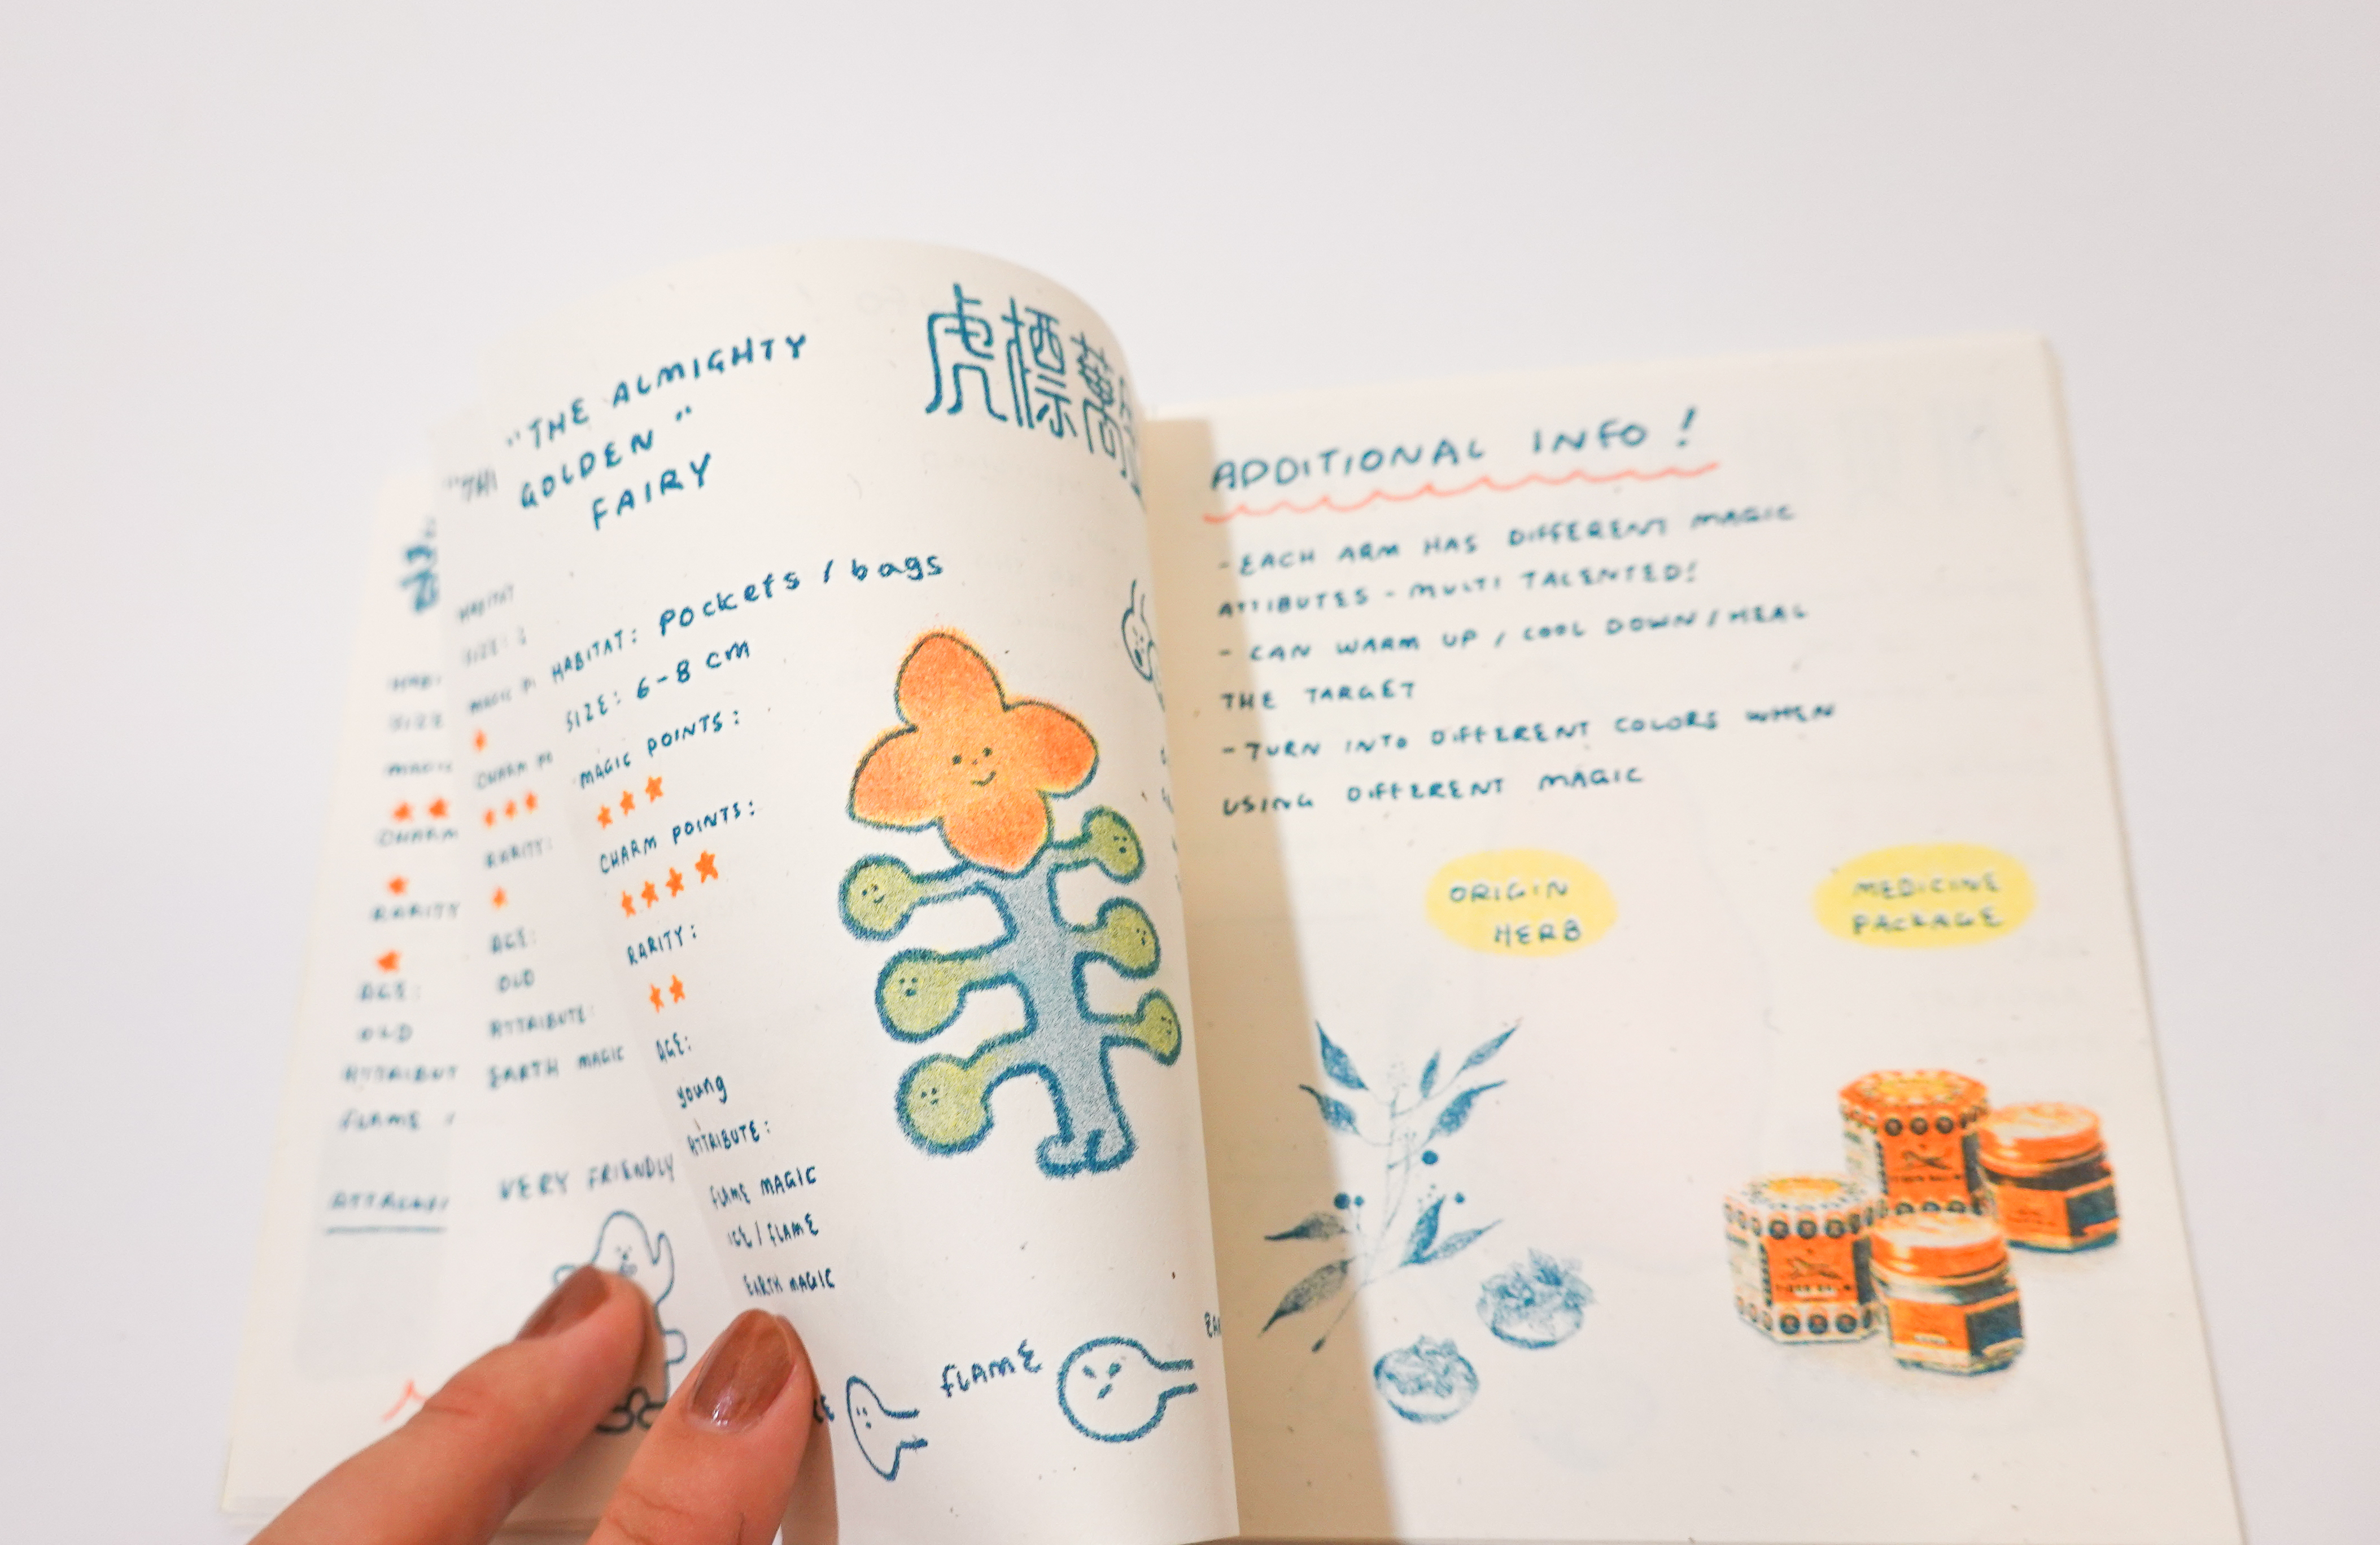 "THE ALMIGHTY
GOLDEN"
FAIRY
虎標萬
HABITAT: Pockets / bags
SIZE: 6-8 cm
MAGIC POINTS:
CHARM POINTS:
RARITY:
AGE:
young
ATTRIBUTE:
FLAME MAGIC
ICE / FLAME
EARTH MAGIC
FLAME
HABITAT
SIZE:
MAGIC
CHARM
RARITY:
AGE:
OLD
ATTRIBUTE:
EARTH MAGIC
VERY FRIENDLY
SIZE
CHARM
RARITY
AGE:
OLD
ATTRIBUT
FLAME /
ADDITIONAL INFO!
- EACH ARM HAS DIFFERENT MAGIC
ATTIBUTES - MULTI TALENTED!
- CAN WARM UP / COOL DOWN / HEAL
THE TARGET
- TURN INTO DIFFERENT COLORS WHEN
USING DIFFERENT MAGIC
ORIGIN
HERB
MEDICINE
PACKAGE